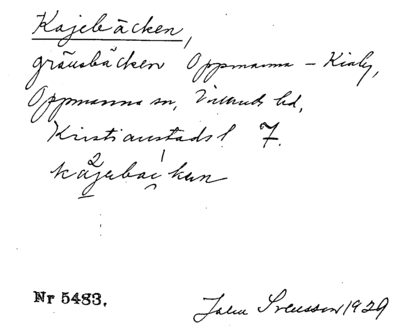 Kajebäcken,
gränsbäcken Oppmanna – Kiaby,
Oppmanna sn, Villands hd,
Kristianstads l. 7.
Nr 5483.
Sven Svensson 1929